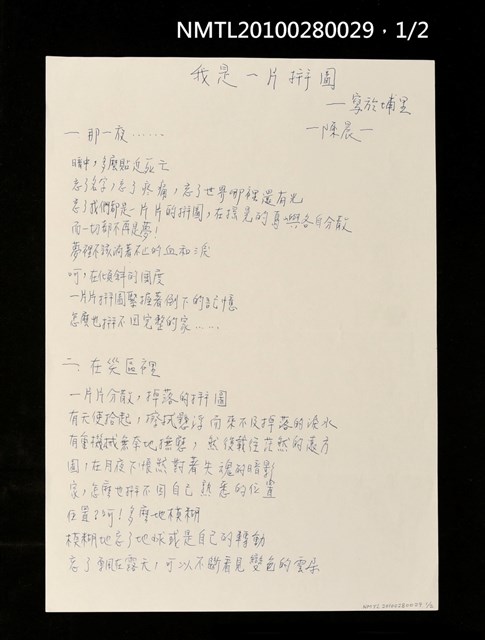 NMTL20100280029，1/2
我是一片拼圖
—寫於埔里
—陳晨—
一 那一夜……
暗中，多麼貼近死亡
忘了名字，忘了疼痛，忘了世界哪裡還有光
忘了我們都是一片片的拼圖，在撞見的真與各自分散
而一切都不再是夢！
夢裡不該淌著不止的血和淚
呵，在傾斜的國度
一片片拼圖緊握著倒下的記憶
怎麼也拼不回完整的家……
二、在災區裡
一片片分散，掉落的拼圖
有天使拾起，擦拭懸浮而來不及掉落的淚水
有重機械無奈地撫慰，然後載往茫然的遠方
圓，在月夜下悵然對著失魂的暗影
家，怎麼也拼不回自己熟悉的位置
位置？呵！多麼地模糊
模糊地忘了地球或是自己的轉動
忘了躺在露天，可以不斷看見變色的雲朵
NMTL20100280029 1/2